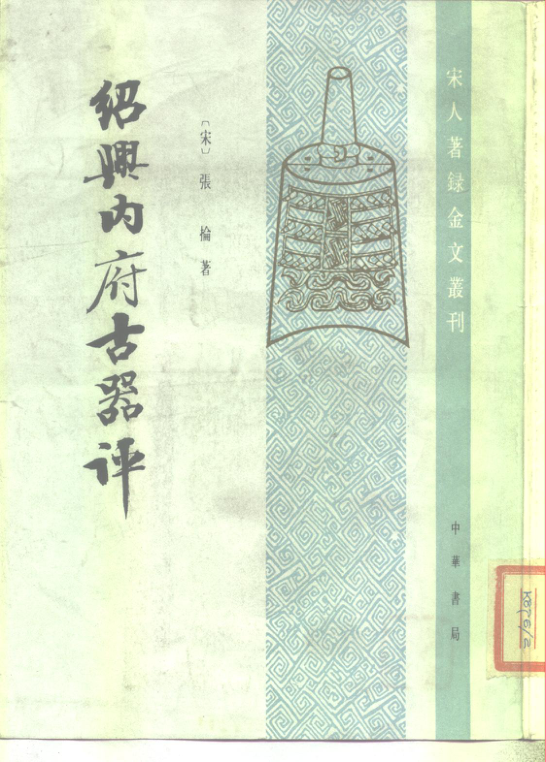 宋人著録金文叢刊
〔宋〕張掄著
紹興内府古器評
中華書局
K876/2